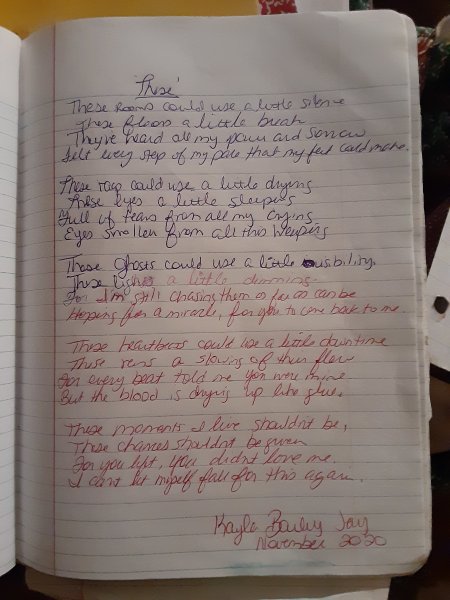 These
These rooms could use a little silence
These floors a little break
They've heard all my pain and sorrow
Felt every step of my pace that my feet could make.
These rags could use a little drying
These eyes a little sleeping
Full of tears from all my crying
Eyes swollen from all this weeping
These ghosts could use a little visibility.
These lights a little dimming.
For I'm still chasing them as far as can be
Hoping for a miracle, for you to come back to me.
These heartbeats could use a little downtime
These veins a slowing of their flow
For every beat told me you were mine
But the blood is drying up like glue.
These moments I live shouldn't be,
These chances shouldn't be given
For you left, you didn't love me.
I can't let myself fall for this again.
Kayla Bailey Jay
November 2020